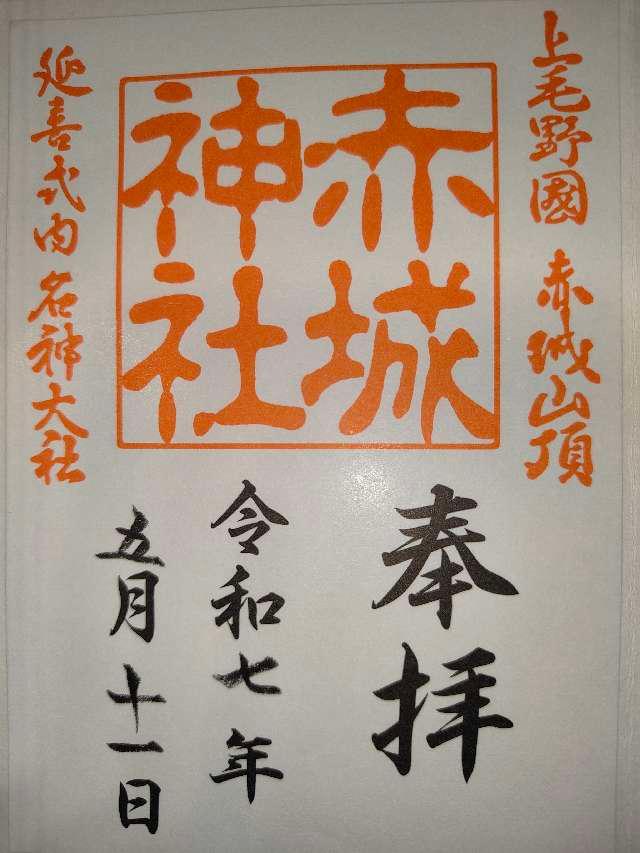 上毛野國 赤城山頂
赤城
神社
延喜式内 名神大社
奉拝
令和七年
五月十一日